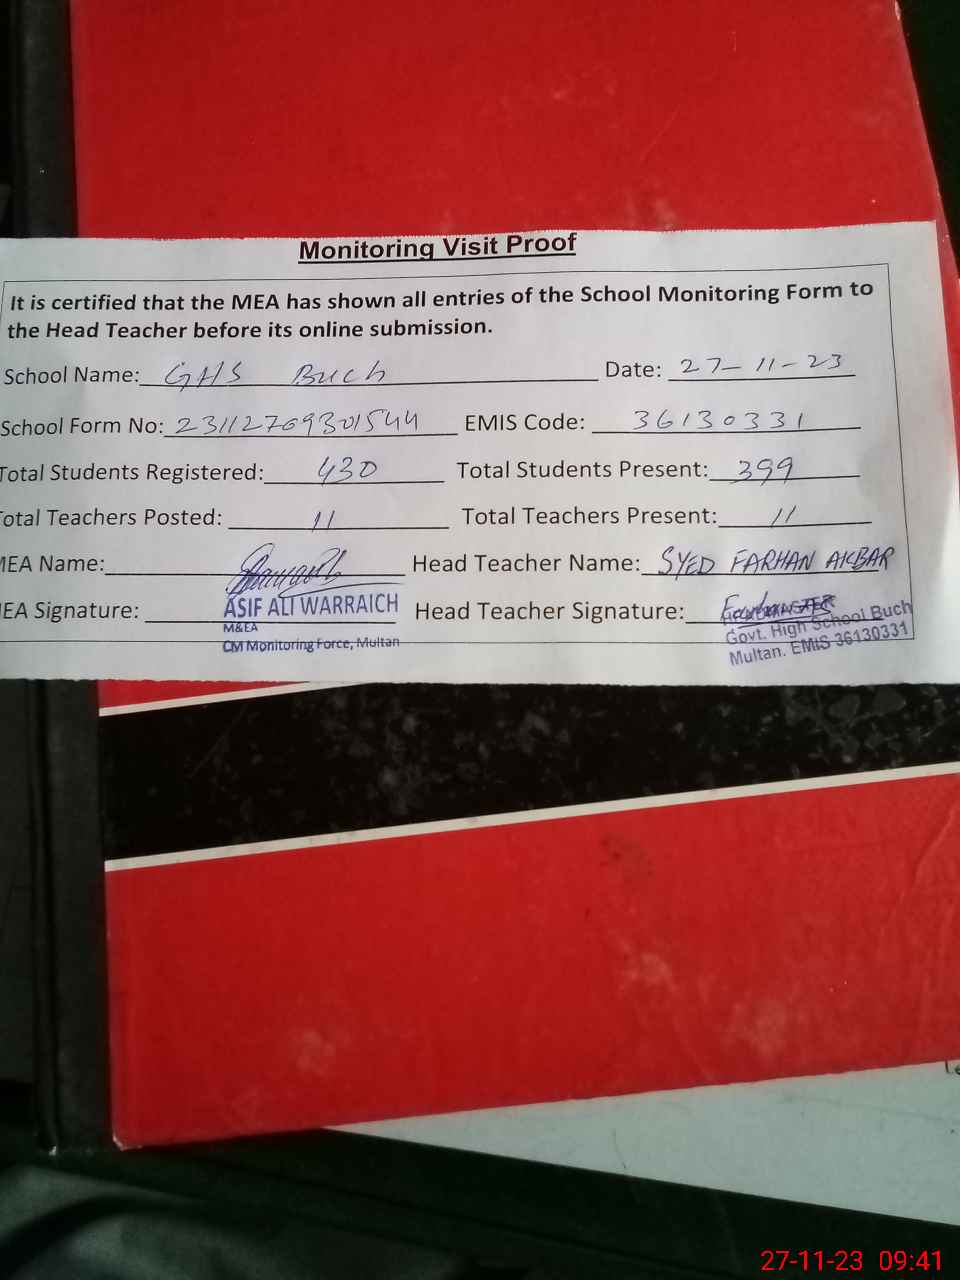 Monitoring Visit Proof
It is certified that the MEA has shown all entries of the School Monitoring Form to
the Head Teacher before its online submission.
School Name: GHS Buch Date: 27-11-23
School Form No: 23112769301544 EMIS Code: 36130331
Total Students Registered: 430 Total Students Present: 399
Total Teachers Posted: 11 Total Teachers Present: 11
MEA Name: Head Teacher Name: SYED FARHAN AKBAR
MEA Signature: ASIF ALI WARRAICH Head Teacher Signature:
M&EA
CM Monitoring Force, Multan
Govt. High School Buch
Multan. EMIS 36130331
27-11-23 09:41